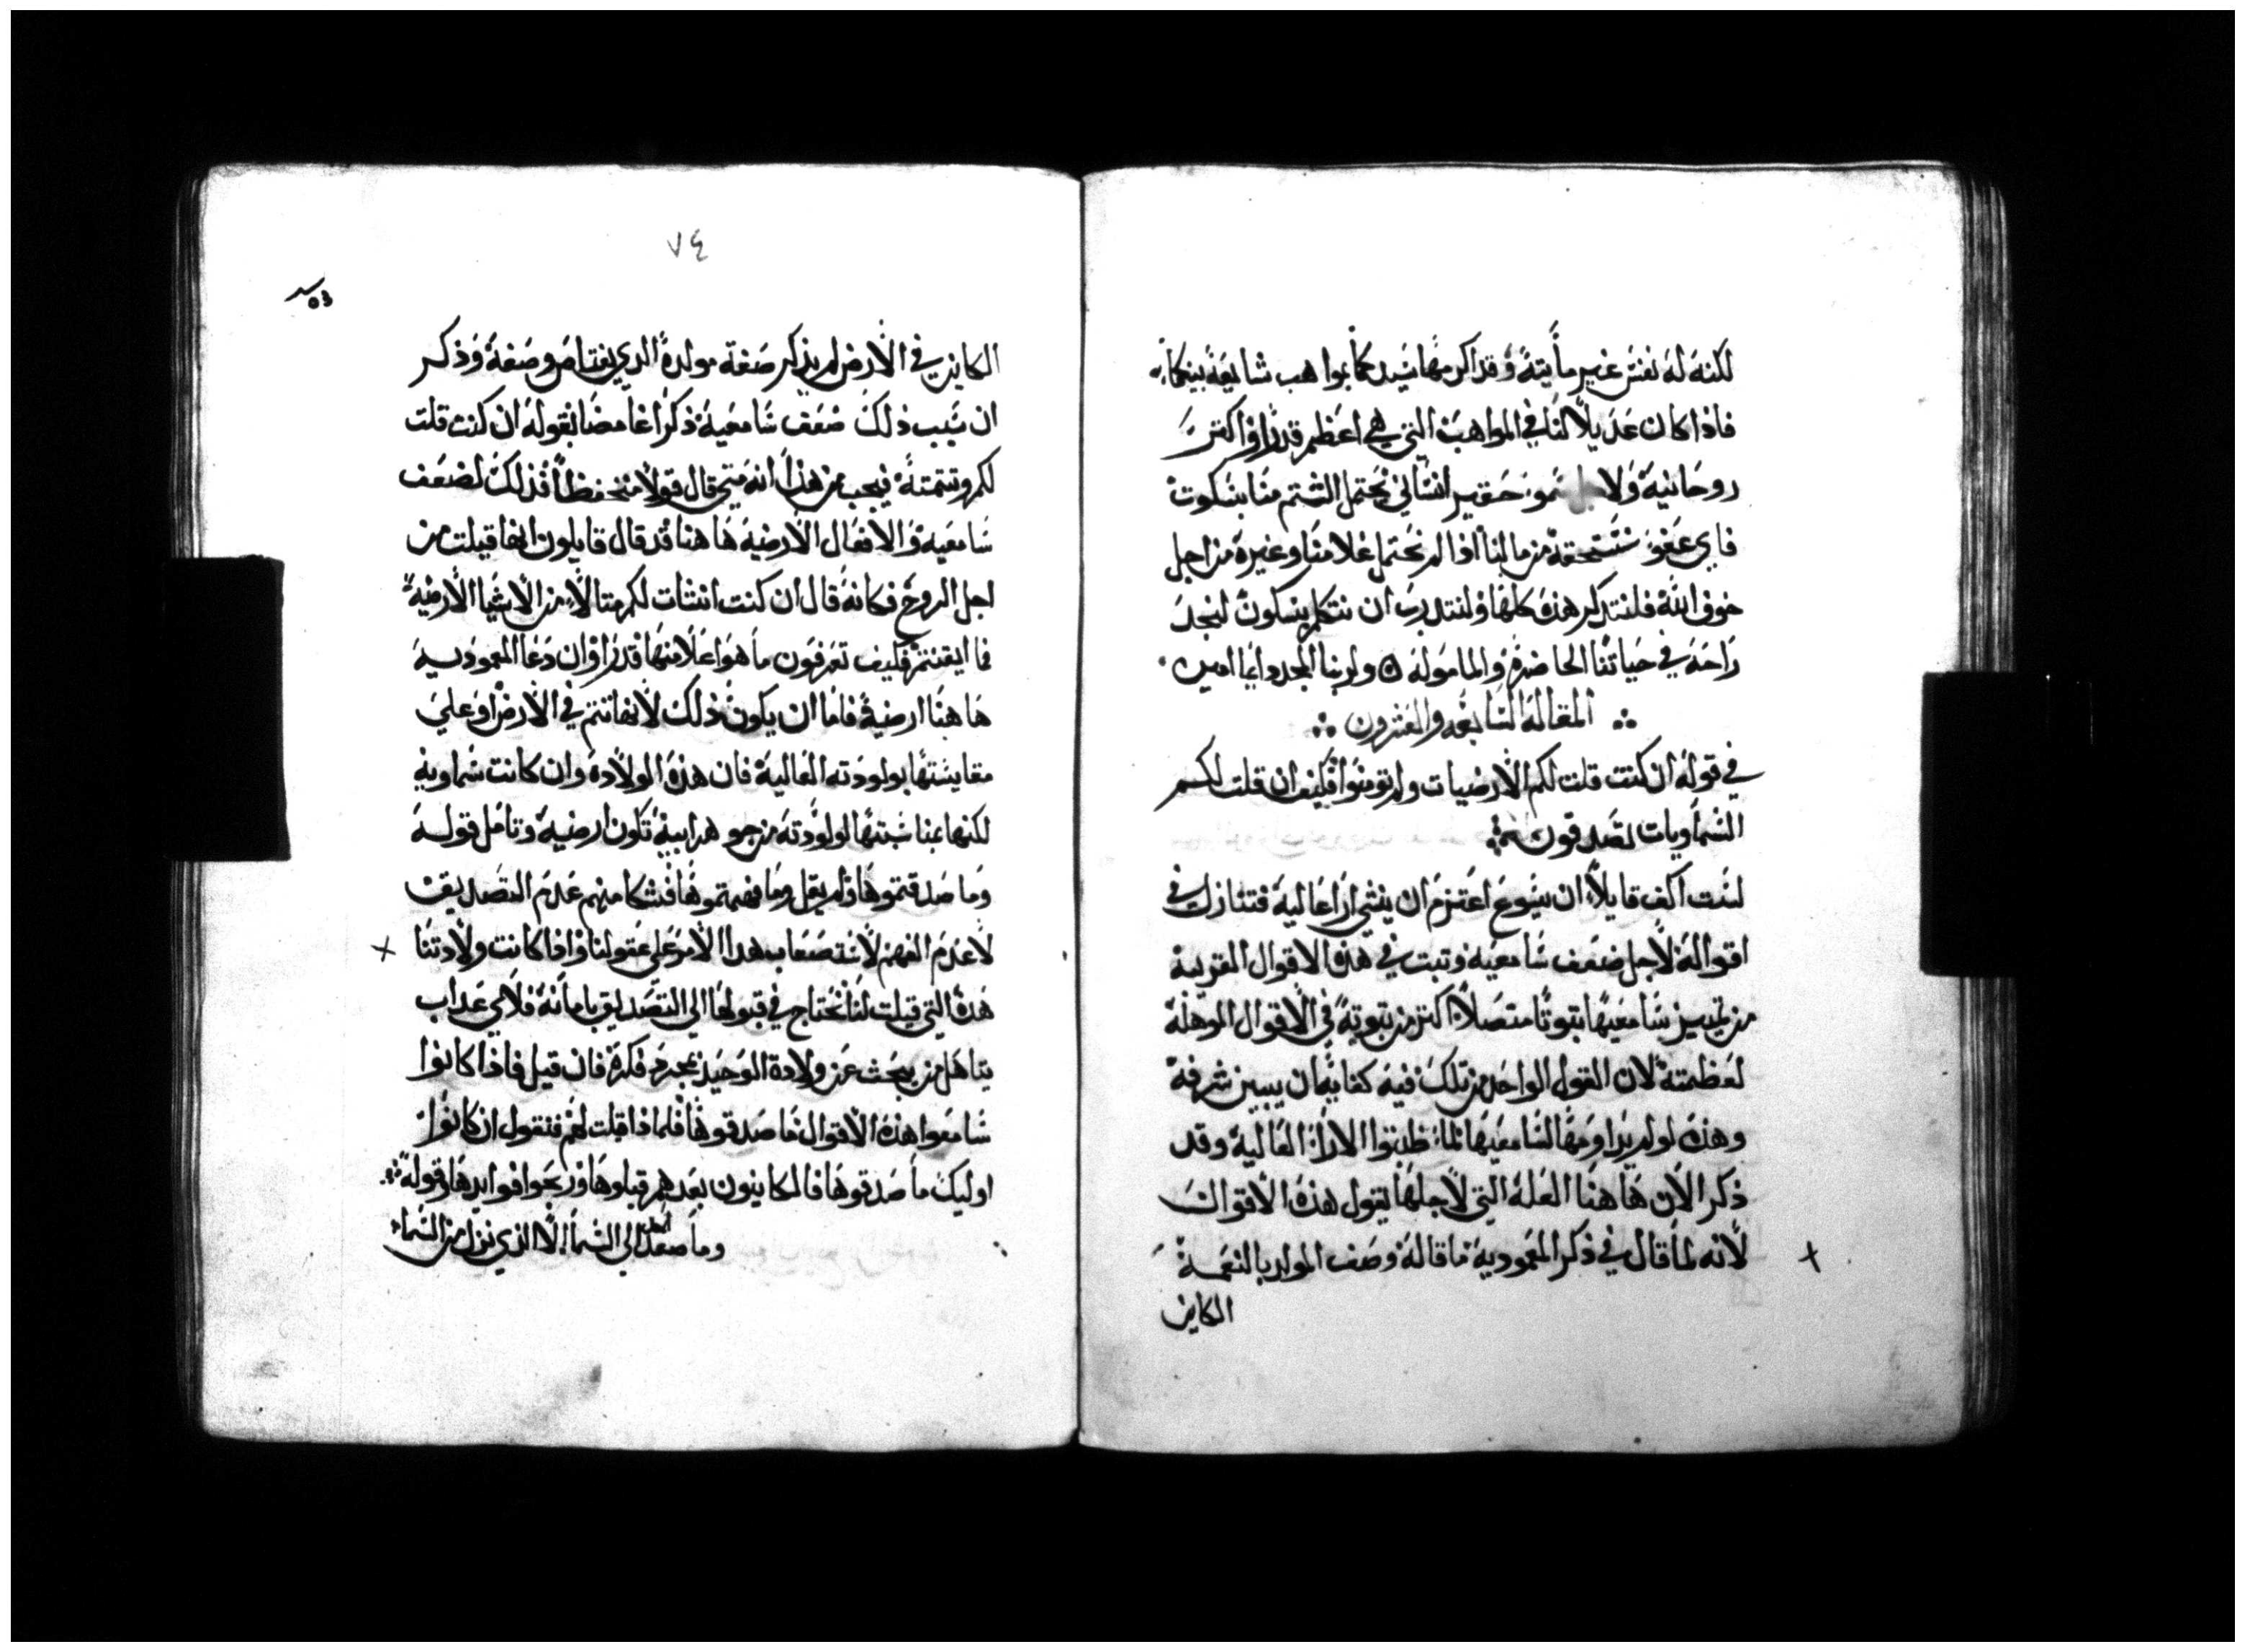 لكنه له نفس غير مايته وقد اكرمها سيدكما بمواهب شايعه بينكما
فاذا كان عديلا لنا في المواهب التي هي اعظم قدرا واكثر
روحانيه ولا سمو حقير انساني نحتمل الشتم منا بسكوت
فاي عفو نستحقه من مالنا اذا لم نحتمل غلامنا وغيره من اجل
خوف الله فلنتذكر هذه كلها ولنتدرب ان نتكلم بسكون لنجد
راحه في حياتنا الحاضره والماموله ولربنا المجد دايما امين
المقاله السابعه والعشرون
في قوله ان كنت قلت لكم الارضيات ولم تومنوا فكيف ان قلت لكم
السماويات تصدقون
لست اكف قايلا ان يسوع اعتزم ان ينشي ارا عاليه فتنازل في
اقواله لاجل ضعف سامعيه وتبت في هذه الاقوال القريبه
من تمييز سامعيها تبوتا متصلا اكتر من تبوته في الاقوال الموهله
لعظمته لان القول الواحد من تلك فيه كفايه ان يبين شرفه
وهذه لو لم يداومها لسامعيها لما ظنوا الارا العاليه وقد
ذكر الان هاهنا العله التي لاجلها يقول هذه الاقوال
لانه لما قال في ذكر المعموديه ما قاله وصف المولد بالنعمه
الكاين
٧٤
الكاين في الارض لم يذكر صفة مولده الذي يعتاص وصفه وذكر
ان سبب ذلك ضعف سامعيه ذكرا غامضا بقوله ان كنت قلت
لكم وتتمته فيجب من هذا انه متى قال قولا منخفظا فذلك لضعف
سامعيه والافعال الارضيه هاهنا قد قال قايلون انها قيلت من
اجل الروح فكانه قال ان كنت انشات لكم متالا من الاشيا الارضيه
فما ايقنتم فكيف تعرفون ما هو اعلا منها قدرا وان دعا المعموديه
هاهنا ارضيه فاما ان يكون ذلك لانها تتم في الارض او على
مقايستها بولودته العاليه فان هذه الولاده وان كانت سماويه
لكنها بمناسبتها لولودته من جوهر ابيه تكون ارضيه وتامل قوله
وما صدقتموها ولم يقل وما فهمتموها فشكا منهم عدم التصديق
لا عدم الفهم لاستصعاب هدا الامر على عقولنا واذا كانت ولادتنا
هذه التي قيلت لنا نحتاج في قبولها الى التصديق بامانه فلاي عداب
يتاهل من يبحث عن ولادة الوحيد بمجرد فكره فان قيل فاذا كانوا
سامعوا هذه الاقوال ما صدقوها فلماذا قيلت لهم فنقول ان كانوا
اوليك ما صدقوها فالكاينون بعدهم قبلوها وربحوا فوايدها وقوله
وما صعد احد الى السما الا الذي نزل من السما